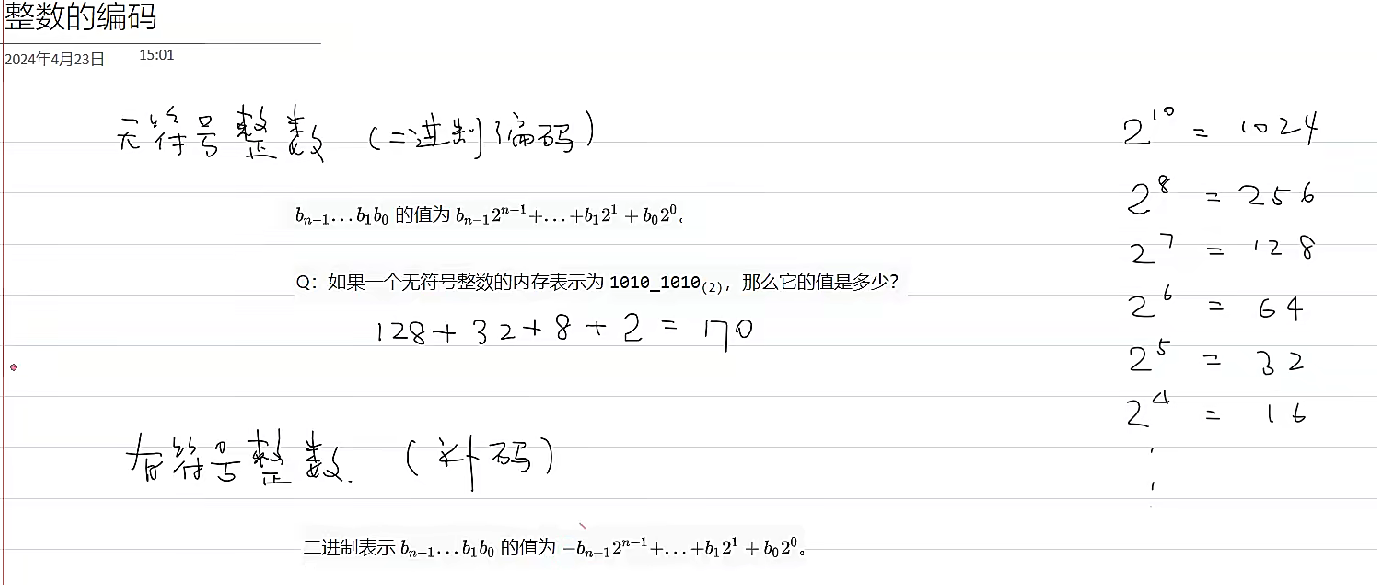 整数的编码
2024年4月23日 15:01
无符号整数（二进制编码）
bₙ₋₁…b₁b₀ 的值为 bₙ₋₁2ⁿ⁻¹+…+b₁2¹+b₀2⁰。
Q：如果一个无符号整数的内存表示为 1010_1010₍₂₎，那么它的值是多少？
128+32+8+2=170
有符号整数.（补码）
二进制表示 bₙ₋₁…b₁b₀ 的值为 −bₙ₋₁2ⁿ⁻¹+…+b₁2¹+b₀2⁰。
2¹⁰ = 1024
2⁸ = 256
2⁷ = 128
2⁶ = 64
2⁵ = 32
2⁴ = 16
⋮